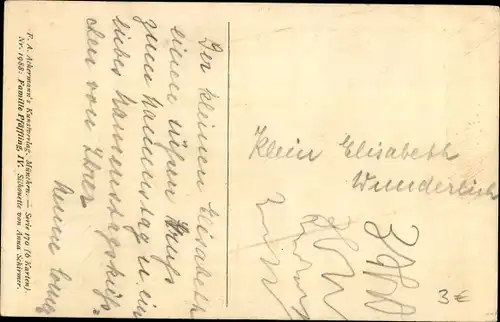 F. A. Ackermann's Kunstverlag, München. — Serie 170 (6 Karten)
Nr. 1988: Familie Pfäffling IV. Silhouette von Anna Schirmer.
Der kleinen Elisabeth
einen süßen Gruß
zum Namenstag u. ein
liebes Namenstagsküß=
chen von Ihrer
Klein Elisabeth
Wunderlich
3€